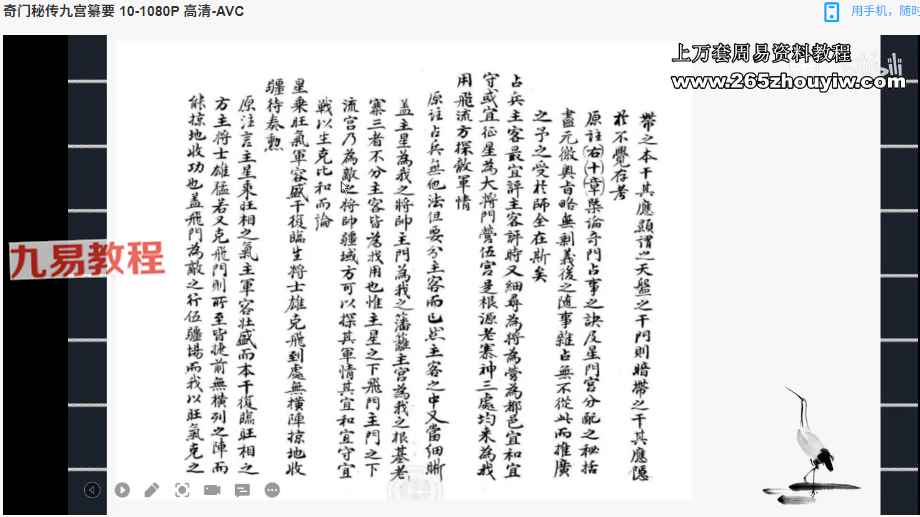 奇门秘传九宫纂要 10-1080P 高清-AVC
用手机，随时
上万套周易资料教程
www.265zhouyiw.com
九易教程
帶之本干其應顕謂之天盤之干門則暗帶之干其應隱
於不覺存考
原註右十章槩論奇門占事之訣及星門宮分配之秘括
盡元微奧旨略無剩義後之隨事雜占無不從此而推廣
之予之受於師全在斯矣
占兵主客最宜評主客評時又細尋為將為營為都邑宜和宜
守或宜征星為大將門營伍宮是根源老寨神三處均来為我
用飛流方探敵軍情
原註占兵無他法但要分主客而已然主客之中又當細晰
盖主星為我之將帥主門為我之藩籬主宮為我之根基老
寨三者不分主客皆為我用也惟主星之下飛門主門之下
流宮乃為敵之將帥疆域方可以探其軍情其宜和宜守宜
戦以生克比和而論
星乘旺氣軍容盛干復臨生將士雄克飛到處無橫陣掠地收
疆待奏勲
原注言主星乘旺相之氣主軍容壯盛而本干復臨旺相之
方主將士雄猛若又克飛門則所至皆捷前無橫列之陣而
能掠地收功也盖飛門為敵之行伍疆場而我以旺氣克之